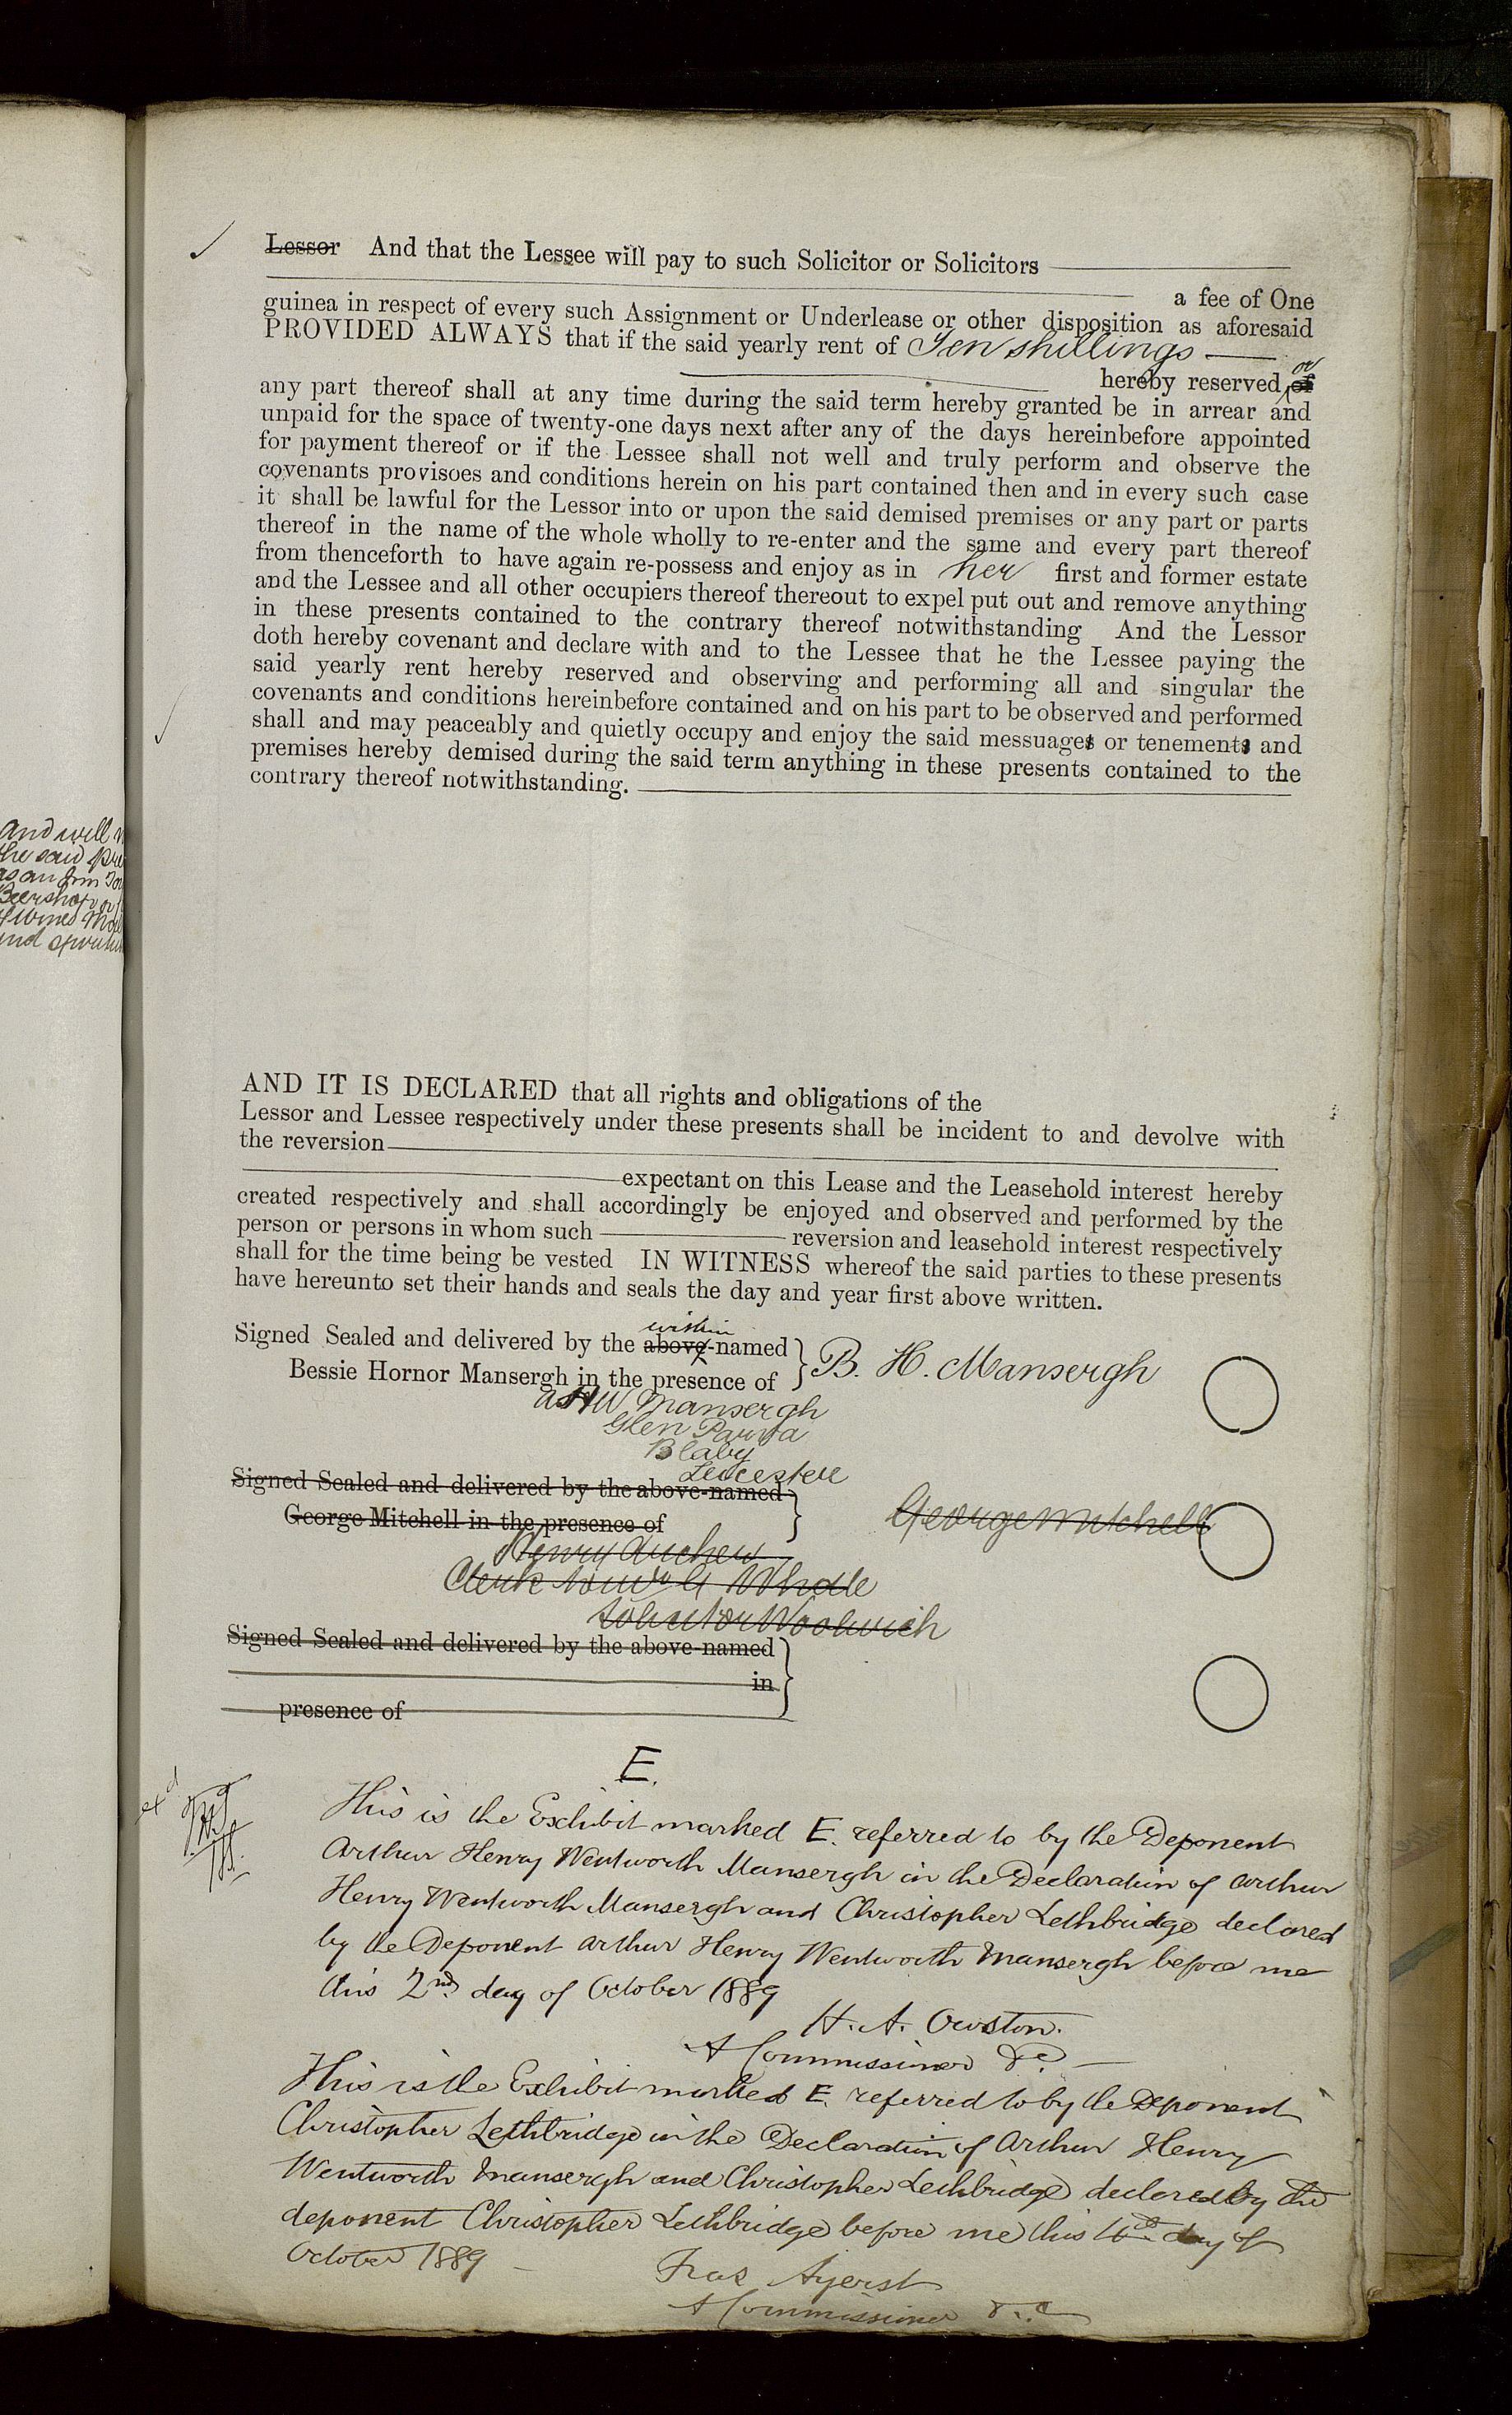 Lessor And that the Lessee will pay to such Solicitor or Solicitors
a fee of One
guinea in respect of every such Assignment or Underlease or other disposition as aforesaid
PROVIDED ALWAYS that if the said yearly rent of Ten shillings
hereby reserved of or
any part thereof shall at any time during the said term hereby granted be in arrear and
unpaid for the space of twenty-one days next after any of the days hereinbefore appointed
for payment thereof or if the Lessee shall not well and truly perform and observe the
covenants provisoes and conditions herein on his part contained then and in every such case
it shall be lawful for the Lessor into or upon the said demised premises or any part or parts
thereof in the name of the whole wholly to re-enter and the same and every part thereof
from thenceforth to have again re-possess and enjoy as in her first and former estate
and the Lessee and all other occupiers thereof thereout to expel put out and remove anything
in these presents contained to the contrary thereof notwithstanding And the Lessor
doth hereby covenant and declare with and to the Lessee that he the Lessee paying the
said yearly rent hereby reserved and observing and performing all and singular the
covenants and conditions hereinbefore contained and on his part to be observed and performed
shall and may peaceably and quietly occupy and enjoy the said messuages or tenements and
premises hereby demised during the said term anything in these presents contained to the
contrary thereof notwithstanding.
And will
the said pre
as an Inn
Beershop or
Wines
and
AND IT IS DECLARED that all rights and obligations of the
Lessor and Lessee respectively under these presents shall be incident to and devolve with
the reversion
expectant on this Lease and the Leasehold interest hereby
created respectively and shall accordingly be enjoyed and observed and performed by the
person or persons in whom such reversion and leasehold interest respectively
shall for the time being be vested IN WITNESS whereof the said parties to these presents
have hereunto set their hands and seals the day and year first above written.
within
Signed Sealed and delivered by the above-named
Bessie Hornor Mansergh in the presence of
B. H. Mansergh
AHW Mansergh
Glen Parva
Blaby
Leicester
Signed Sealed and delivered by the above-named
George Mitchell in the presence of
George Mitchell
Henry
Clerk to
Solicitor Woolwich
Signed Sealed and delivered by the above-named
in
presence of
E.
exd
This is the Exhibit marked E. referred to by the Deponent
Arthur Henry Wentworth Mansergh in the Declaration of Arthur
Henry Wentworth Mansergh and Christopher Lethbridge declared
by the Deponent Arthur Henry Wentworth Mansergh before me
this 2nd day of October 1889
H. A. Owston.
A Commissioner &c.
This is the Exhibit marked E. referred to by the Deponent
Christopher Lethbridge in the Declaration of Arthur Henry
Wentworth Mansergh and Christopher Lethbridge declared by the
deponent Christopher Lethbridge before me this day of
October 1889
Fras Ayerst
A Commissioner &c